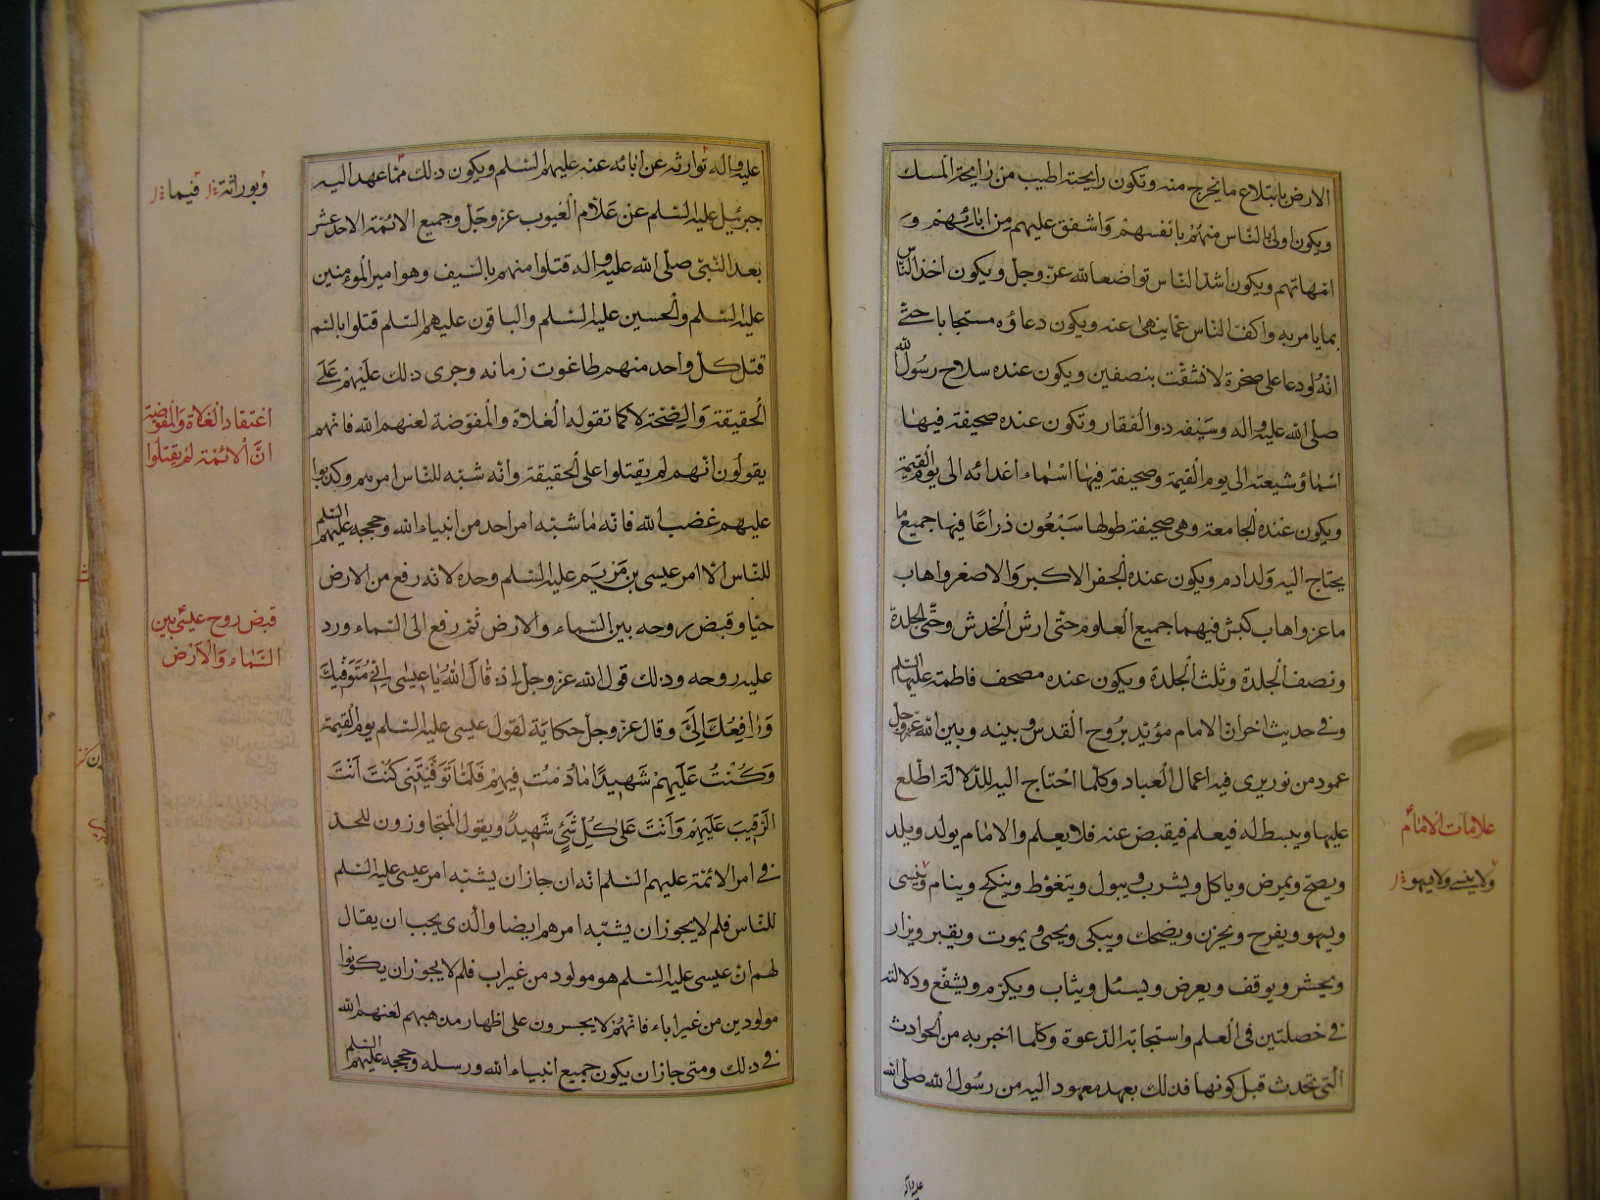 الارض بابتلاع ما يخرج منه وتكون رايحته اطيب من رايحة المسك
ويكون اولى بالناس منهم بانفسهم واشفق عليهم من ابائهم و
امهاتهم ويكون اشد الناس تواضعا لله عز وجل ويكون اخذ الناس
بما يامر به واكف الناس عما ينهى عنه ويكون دعاؤه مستجابا حتى
انه لو دعا على صخرة لانشقت بنصفين ويكون عنده سلاح رسول الله
صلى الله عليه واله وسيفه ذو الفقار وتكون عنده صحيفة فيها
اسماؤ شيعته الى يوم القيمة وصحيفة فيها اسماء اعدائه الى يوم القيمة
ويكون عنده الجامعة وهى صحيفة طولها سبعون ذراعا فيها جميع ما
يحتاج اليه ولد ادم ويكون عنده الجفر الاكبر والاصغر واهاب
ماعز واهاب كبش فيهما جميع العلوم حتى ارش الخدش وحتى الجلدة
ونصف الجلدة وثلث الجلدة ويكون عنده مصحف فاطمة عليها السلم
وفى حديث اخر ان الامام مؤيد بروح القدس وبينه وبين الله عز وجل
عمود من نور يرى فيه اعمال العباد وكلما احتاج اليه للدلالة اطلع
عليها ويبسط له فيعلم فيقبض عنه فلا يعلم والامام يولد ويلد
ويصح ويمرض وياكل ويشرب ويبول ويتغوط وينكح وينام وينسى
ويسهو ويفرح ويحزن ويضحك ويبكى ويحيى ويموت ويقبر ويزار
ويحشر ويوقف ويعرض ويسئل ويثاب ويكرم ويشفع ودلالته
فى خصلتين فى العلم واستجابة الدعوة وكلما اخبر به من الحوادث
التى تحدث قبل كونها فذلك بعهد معهود اليه من رسول الله صلى الله
علامات الامام
ولا ينسى ولا يسهو
عليه واله
عليه واله توارثه عن ابائه عنه عليهم السلم ويكون ذلك مما عهد اليه
جبرئيل عليه السلم عن علام الغيوب عز وجل وجميع الائمة الاحد عشر
بعد النبى صلى الله عليه واله قتلوا منهم بالسيف وهو امير المومنين
عليه السلم والحسين عليه السلم والباقون عليهم السلم قتلوا بالسم
قتل كل واحد منهم طاغوت زمانه وجرى ذلك عليهم على
الحقيقة والصحة لا كما تقوله الغلاة والمفوضة لعنهم الله فانهم
يقولون انهم لم يقتلوا على الحقيقة وانه شبه للناس امرهم وكذبوا
عليهم غضب الله فانه ما شبه امر احد من انبياء الله وحججه عليهم السلم
للناس الا امر عيسى بن مريم عليه السلم وحده لانه رفع من الارض
حيا وقبض روحه بين السماء والارض ثم رفع الى السماء ورد
عليه روحه وذلك قول الله عز وجل اذ قال الله يا عيسى انى متوفيك
ورافعك الى وقال عز وجل حكاية لقول عيسى عليه السلم يوم القيمة
وكنت عليهم شهيدا ما دمت فيهم فلما توفيتنى كنت انت
الرقيب عليهم وانت على كل شئ شهيد ويقول المتجاوزون للحد
فى امر الائمة عليهم السلم انه ان جاز ان يشبه امر عيسى عليه السلم
للناس فلم لا يجوز ان يشبه امرهم ايضا والذى يجب ان يقال
لهم ان عيسى عليه السلم هو مولود من غير اب فلم لا يجوز ان يكونوا
مولودين من غير اباء فانهم لا يجسرون على اظهار مذهبهم لعنهم الله
فى ذلك ومتى جاز ان يكون جميع انبياء الله ورسله وحججه عليهم السلم
وبوراثة فيما
اعتقاد الغلاة والمفوضة
ان الائمة لم يقتلوا
قبض روح عيسى بين
السماء والارض